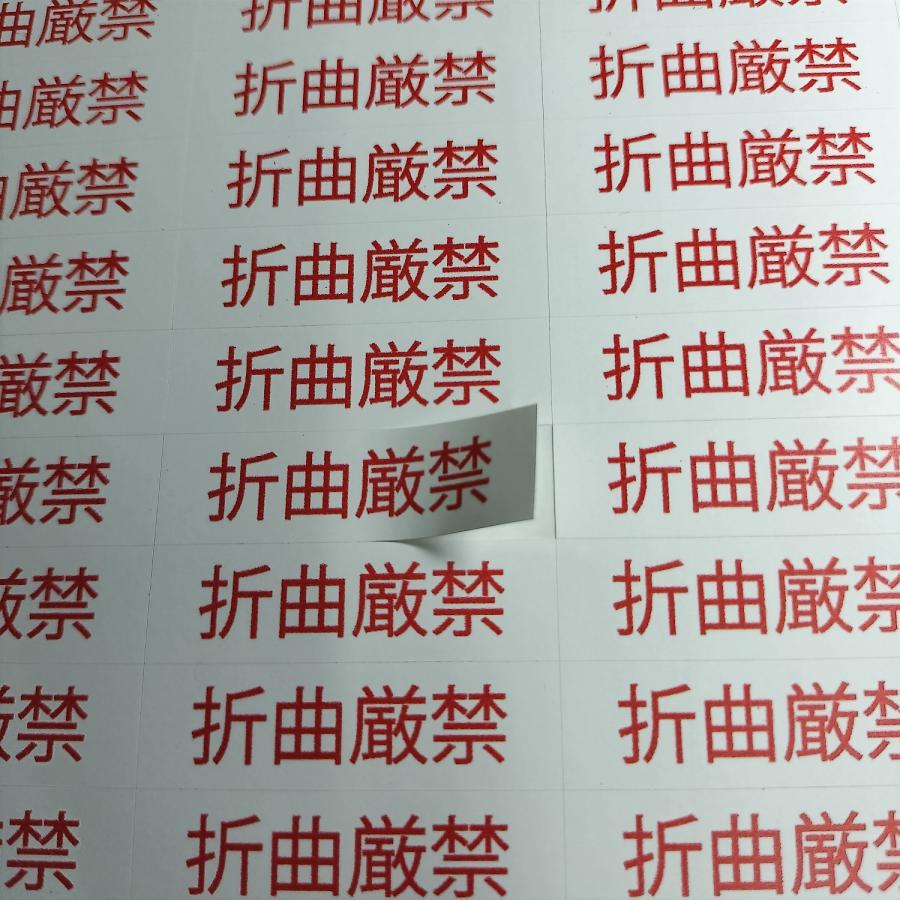 曲厳禁 折曲厳禁 折曲厳禁
曲厳禁 折曲厳禁 折曲厳禁
厳禁 折曲厳禁 折曲厳禁
厳禁 折曲厳禁 折曲厳禁
厳禁 折曲厳禁 折曲厳禁
厳禁 折曲厳禁 折曲厳禁
禁 折曲厳禁 折曲厳禁
禁 折曲厳禁 折曲厳
禁 折曲厳禁 折曲厳